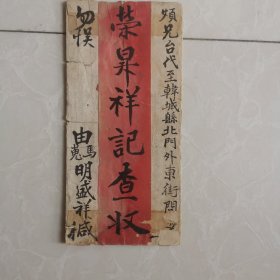 煩兄台代至韓城縣北門外東街間交
榮昇祥記查收
勿悮
由馬蒐明盛祥緘